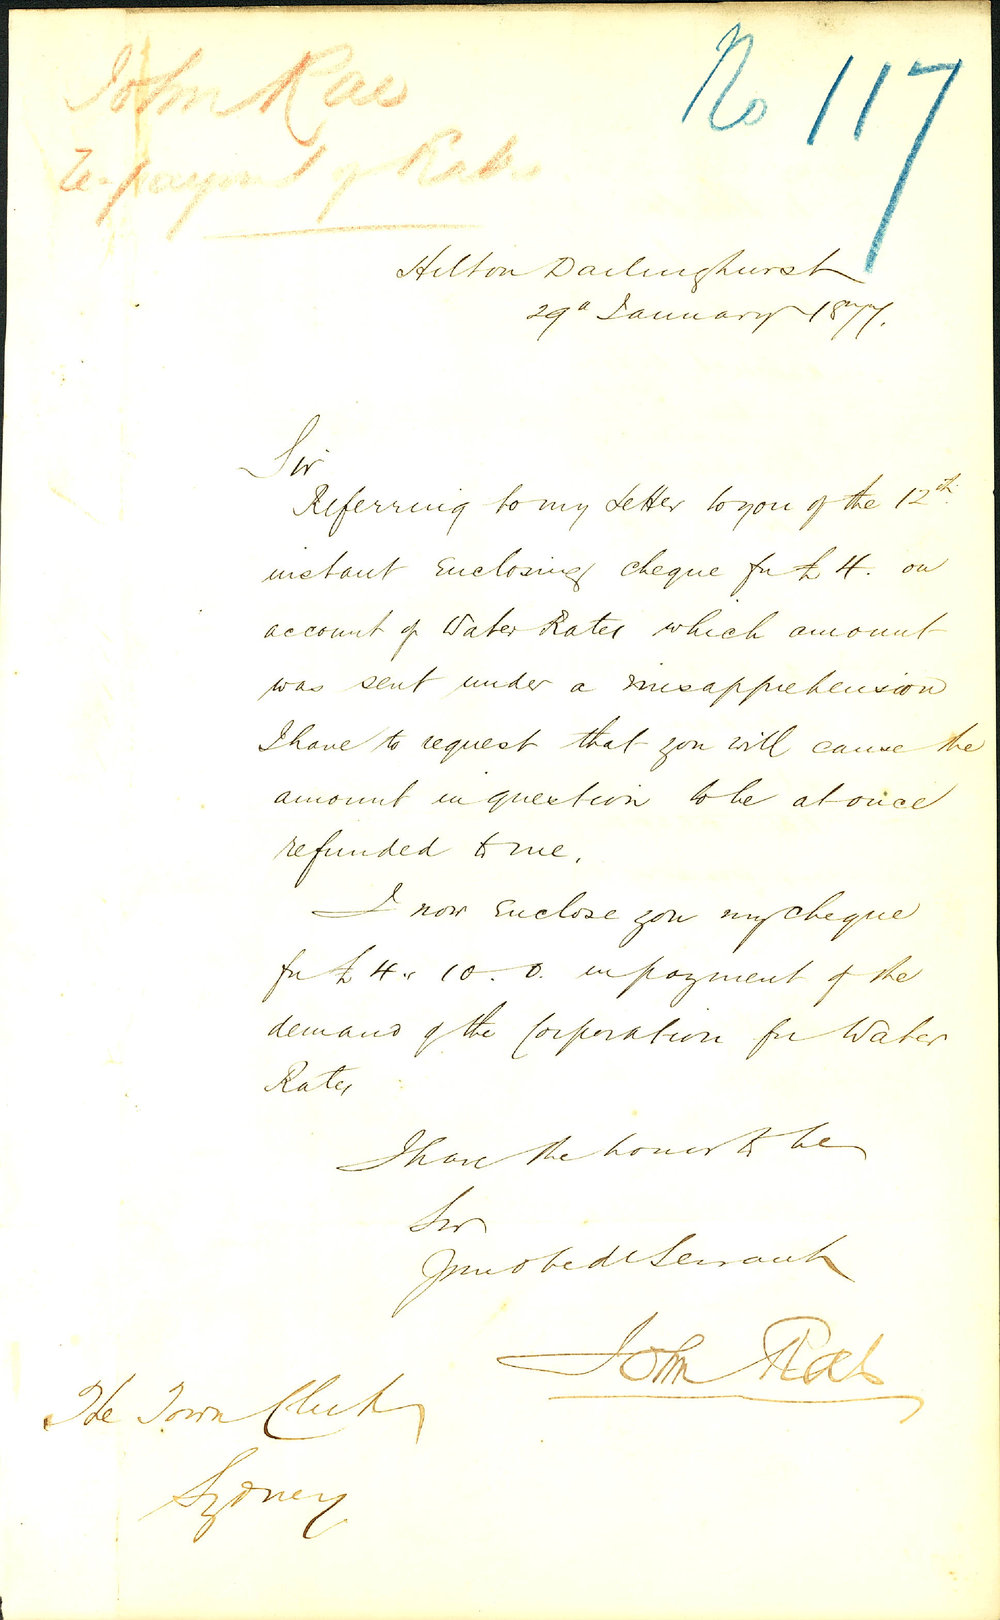 John Rae
Re-payment of Rates
No 117
Hilton Darlinghurst
29th January 1877.
Sir
Referring to my letter to you of the 12th
instant Enclosing cheque for £4. on
account of Water Rates which amount
was sent under a misapprehension
I have to request that you will cause the
amount in question to be at once
refunded to me.
I now Enclose you my cheque
for £4. 10. 0. in payment of the
demand of the Corporation for Water
Rates
I have the honor to be
Sir
Your obedt Servant
John Rae
The Town Clerk
Sydney